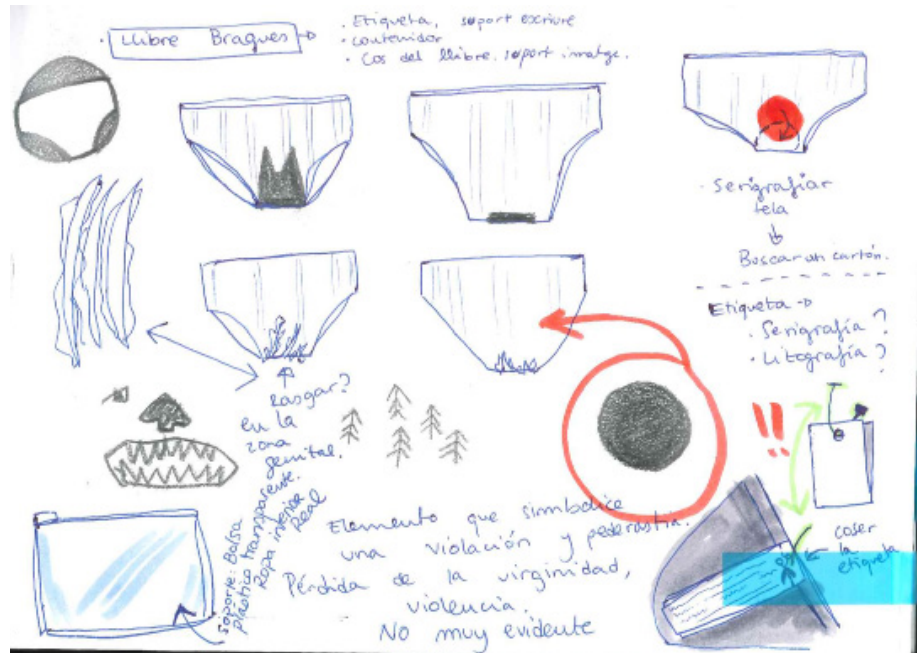 · Llibre Bragues →
· Etiqueta, suport escriure
· contenidor
· Cos del llibre, suport imatge.
· Serigrafiar
tela
↓
Buscar un cartón.
Etiqueta →
· Serigrafía ?
· Litografía ?
!!
coser
la
etiqueta
Rasgar?
en la
zona
genital.
soporte: Bolsa
plástico transparente.
Ropa interior
Real
Elemento que simbolice
una violación y pederastia.
Pérdida de la virginidad,
violencia.
No muy evidente